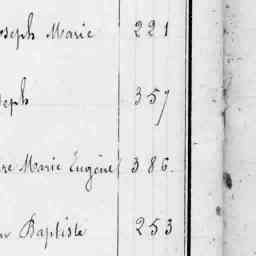 oseph Marie 221
seph 357
re Marie Eugène 386.
n Baptiste 253